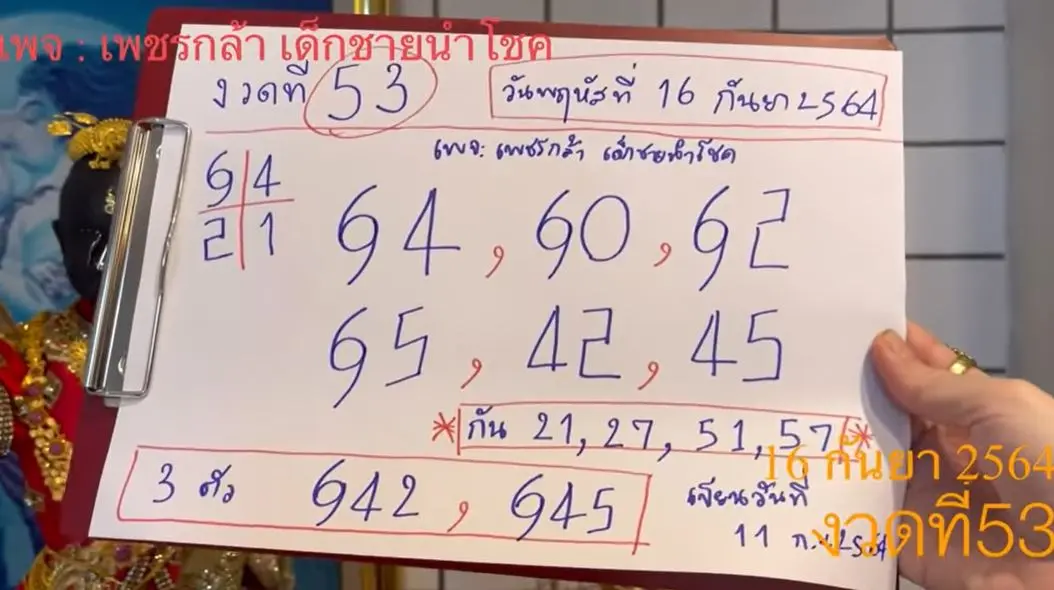 เพจ : เพชรกล้า เด็กชายนำโชค
งวดที่ 53
วันพฤหัสที่ 16 กันยา 2564
เพจ: เพชรกล้า เด็กชายนำโชค
64
21
64, 60, 62
65, 42, 45
* กัน 21, 27, 51, 57 *
3 ตัว 642, 645
เขียนวันที่
11 ก.ย. 2564
16 กันยา 2564
งวดที่53